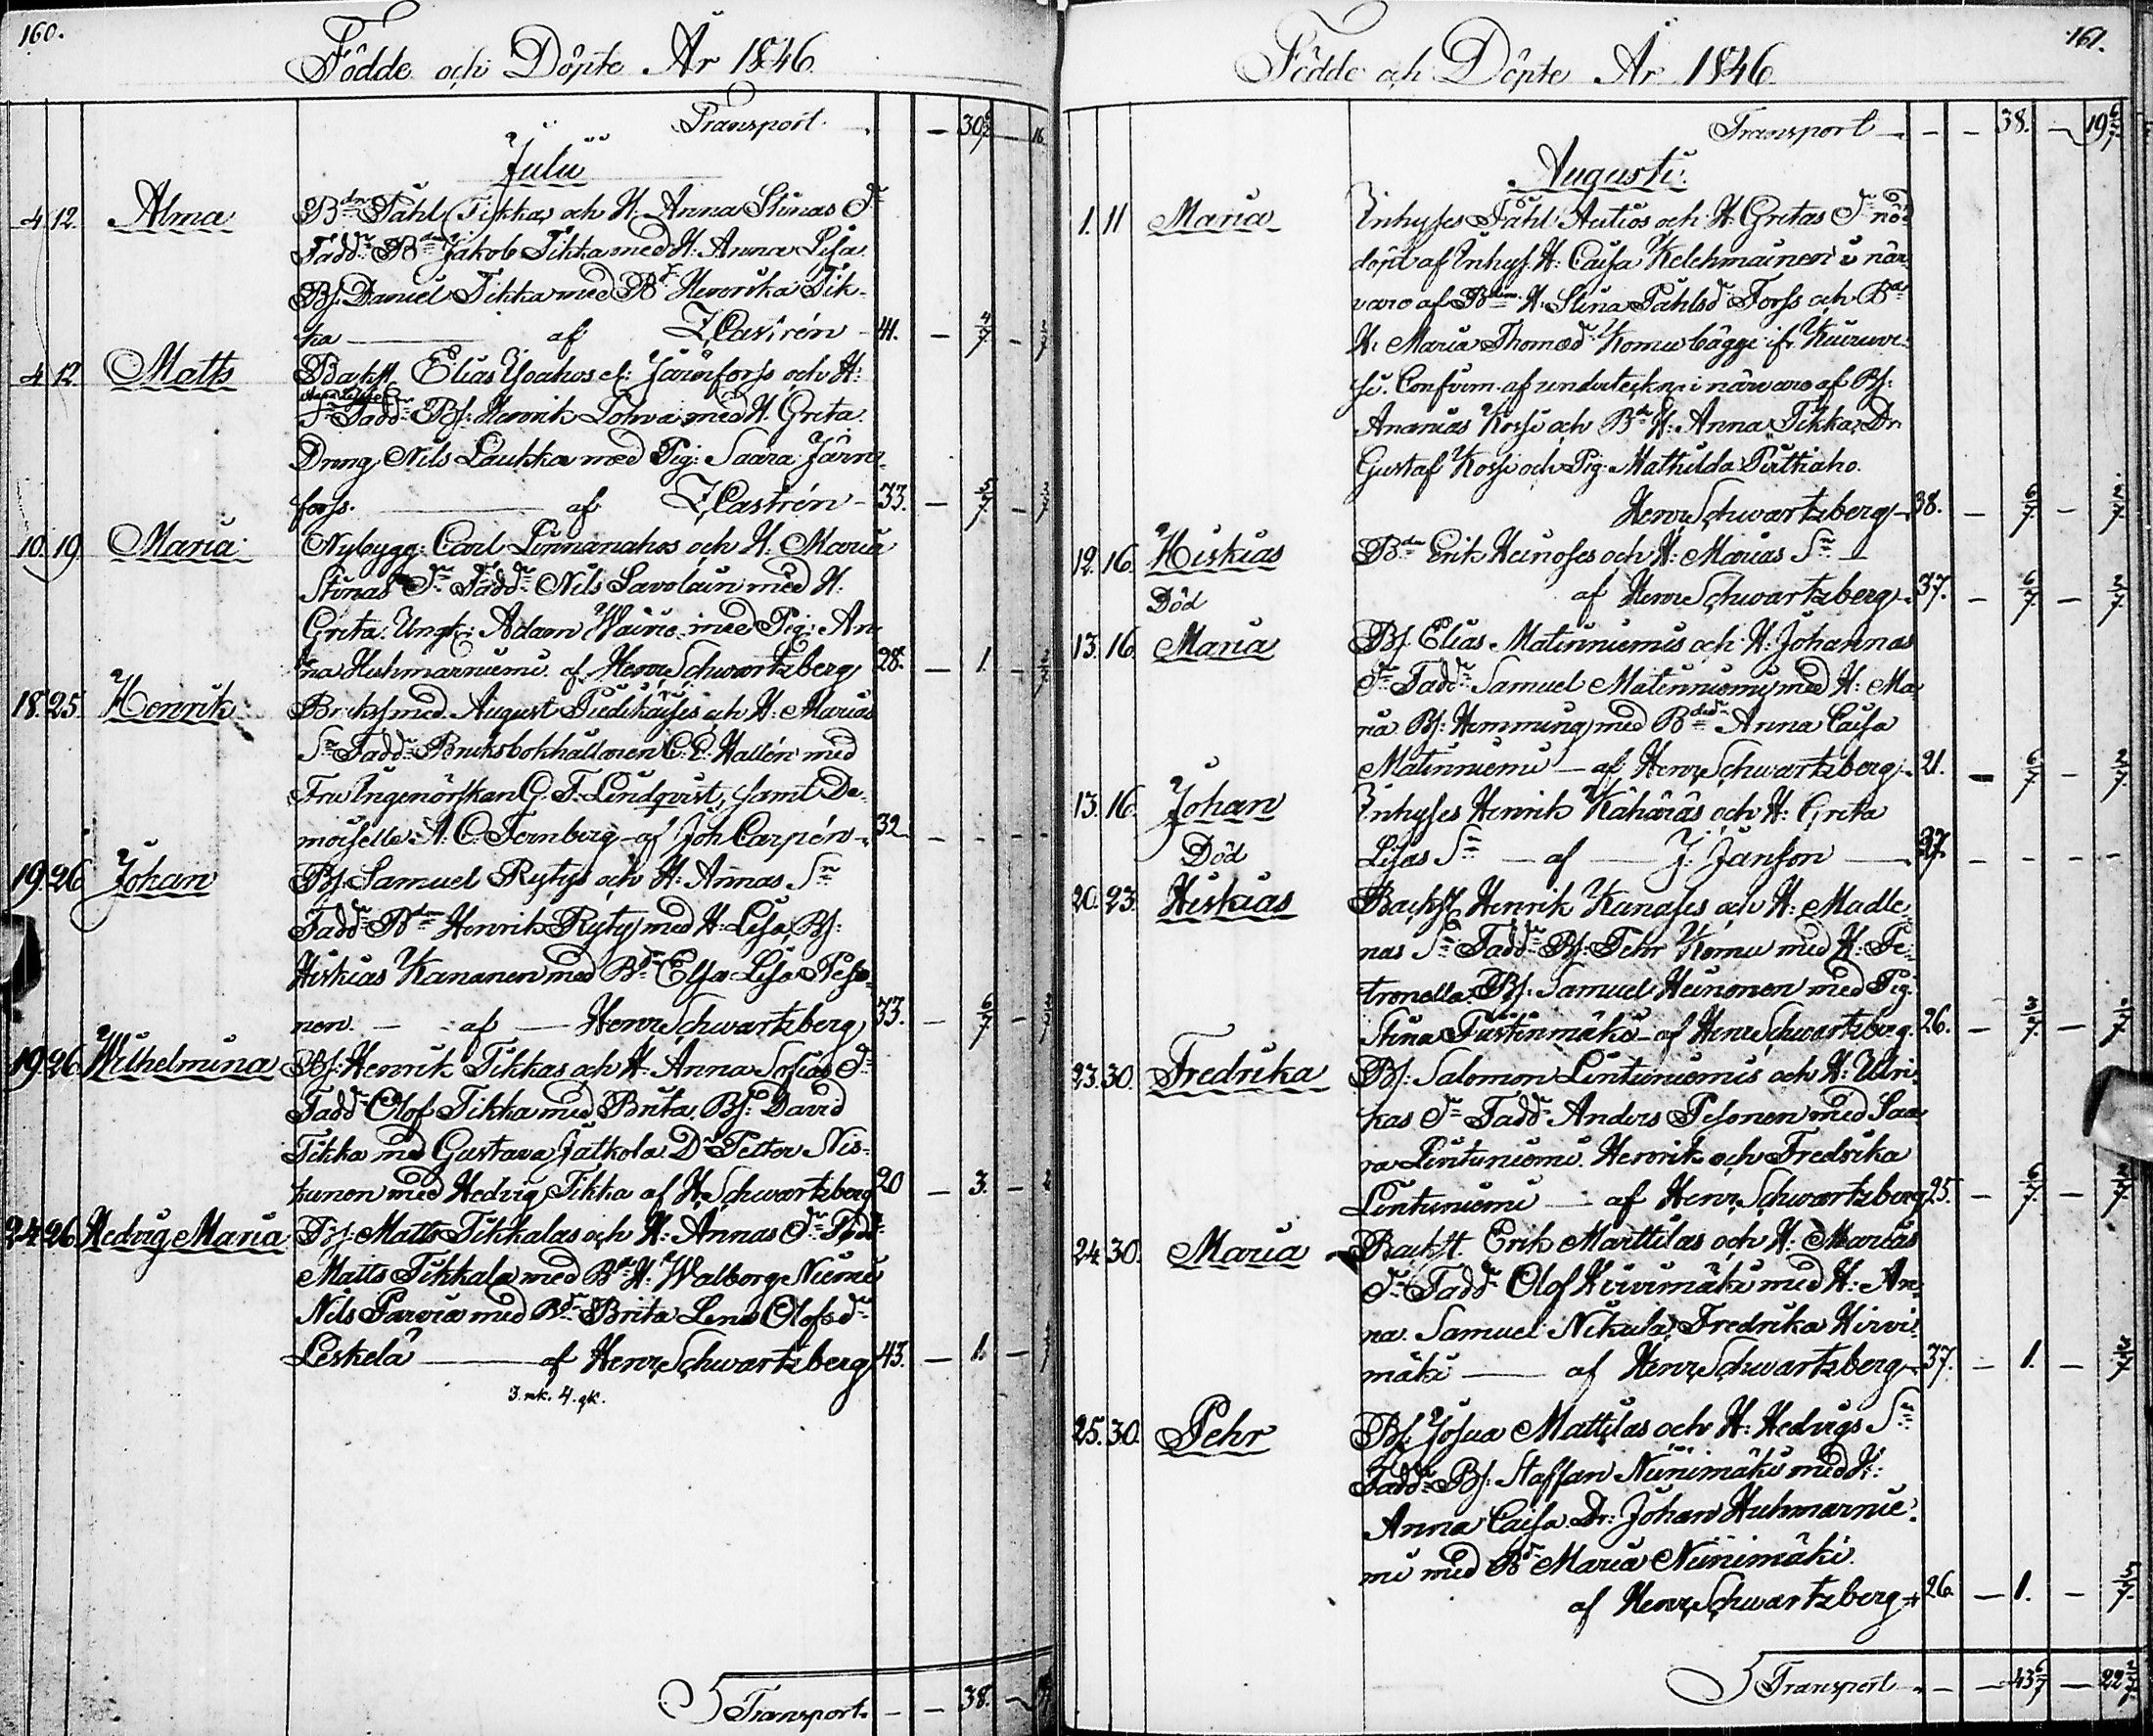 160.
Födde och Döpte År 1846.
Transport. — 30 6/7 — 16
Julii
4 12. Alma Bdn Påhl Tikkas och H. Anna Stinas Dr
Fadd: Bdn Jakob Tikka med H. Anna Lisa
Bs. Daniel Tikka med Bdr Henrika Tik-
ka — af Z. Castrén — 41. — 4/7 — 2/7
4 12 Matts Backst. Elias Yoahos ef: Järnforss och H:
Sn Fadd: Bs: Henrik Lohva med H. Greta.
Dräng Nils Laukka med Pig: Saara Järn-
forss. — af Z. Castrén — 33. — 5/7 — 2/7
10. 19. Maria Nybygg: Carl Linnanahos och H: Maria
Stinas Dr Fadd: Nils Savolain med H:
Greta. Ungk: Adam Wainio med Pig: An-
na Huhmarniemi af Henr. Schwartzberg 28. — 1. — 2/7
18. 25. Henrik Bruksmed. August Piedikäises och H: Marias
Sn Fadd: Bruksbokhållaren C. E. Hallén med
Fru Ingenörskan G. F. Lindqvist, samt De-
moiselle A. C. Fernberg — af Joh Carpén — 32 — — —
19. 26 Johan Bs. Samuel Rytys och H: Annas Sn
Fadd: Bdn Henrik Ryty med H: Lisa, Bs:
Hiskias Kananen med Bdr Elsa Lisa Peso-
nen. — af — Henr. Schwartzberg 33. — 6/7 — 2/7
19. 26. Wilhelmina Bs: Henrik Tikkas och H: Anna Sofias Dr
Fadd: Olof Tikka med Brita, Bs: David
Tikka med Gustava Jatkola Dr Petter Nis-
kanen med Hedvig Tikka af H. Schwartzberg 20 — 3. — 2
24. 26. Hedvig Maria Bs: Matts Tikkalas och H: Annas Dr Fadd:
Matts Tikkala med Bdr H: Walborg Niemi
Nils Parvia med Bdr Brita Lena Olofsdr
Leskelä — af Henr. Schwartzberg 43. — 1. —
3. mk. 4. gk.
Transport. — — 38. —
161.
Födde och Döpte År 1846
Transport — — — 38. — 19 6/7
Augusti.
1. 11 Maria Inhyses Påhl Autios och H: Gretas Dr nö-
döpt af Inhys. H: Caisa Kelehmainen i när-
varo af Bdn H: Stina Påhlsdr Forss och Bdn
H: Maria Thomædr Komu bägge if. Kiuruve-
si. Confirm. af undertekn. i närvaro af Bs:
Ananias Kossi och Bdr H: Anna Tikka, Dr.
Gustaf Kossi och Pig: Mathilda Puttiaho.
Henr. Schwartzberg — 38. — 6/7 — 2/7
12. 16. Hiskias Bdn Erik Heinoses och H: Marias Sn —
Död af Henr. Schwartzberg — 37. — 6/7 — 2/7
13. 16. Maria Bs. Elias Matinniemis och H: Johannas
Dr Fadd: Samuel Matinniemi med H: Ma-
ria Bs: Hemming med Bdedr Anna Caisa
Matinniemi — af Henr. Schwartzberg — 21. — 6/7 — 2/7
13. 16. Johan Inhyses Henrik Kähäräs och H: Greta
Död Lisas Sn — af — J. Janson — 37. — — — —
20. 23. Hiskias Backst Henrik Kanases och H: Madle-
nas Sn Fadd: Bs: Pehr Komu med H: Pe-
tronella. Bs: Samuel Heinonen med Pig:
Stina Pustinmäki — af Henr. Schwartzberg. 26. — 3/7 — 1/7
23. 30. Fredrika Bs: Salomon Lintuniemis och H: Ulri-
kas Dr Fadd: Anders Pesonen med Saa-
ra Lintuniemi. Henrik och Fredrika
Lintuniemi — af Henr. Schwartzberg 25. — 6/7 — 2/7
24. 30. Maria Backst. Erik Marttilas och H: Marias
Dr Fadd: Olof Hirvimäki med H: An-
na. Samuel Nikula, Fredrika Hirvi-
mäki — af Henr. Schwartzberg — 37. — 1. — 2/7
25. 30. Pehr Bs. Josua Mattilas och H: Hedvigs Sn
Fadd: Bs. Staffan Niinimäki med H:
Anna Caisa. Dr: Johan Huhmarnie-
mi med Bdr Maria Niinimäki.
af Henr. Schwartzberg — 26 — 1. — 5/7
Transport — — — 43 6/7 — 22 2/7